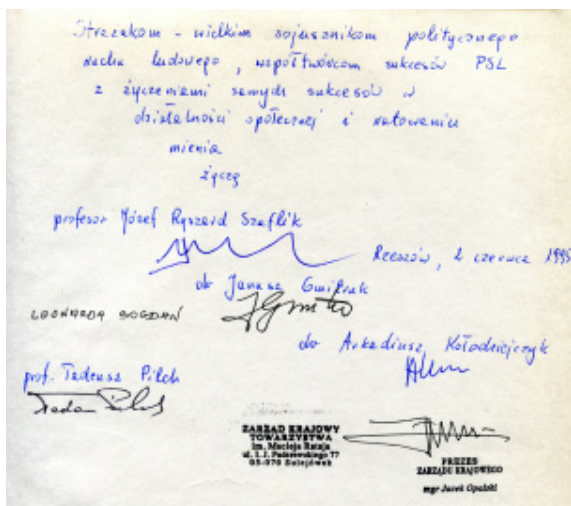 Strażakom - wielkim sojusznikom politycznego
ruchu ludowego, współtwórcom sukcesów PSL
z życzeniami samych sukcesów w
działalności społecznej i ratowaniu
mienia
życzą
profesor Józef Ryszard Szaflik
Rzeszów, 2 czerwca 1995
dr Janusz Gmitruk
LEONARDA BOGDAN
dr Arkadiusz Kołodziejczyk
prof. Tadeusz Pilch
ZARZĄD KRAJOWY
TOWARZYSTWA
im. Macieja Rataja
ul. I. J. Paderewskiego 77
05-070 Sulejówek
PREZES
ZARZĄDU KRAJOWEGO
mgr Jacek Opalski